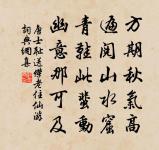 方期秋氣高
遍閱山水窟
青鞋此動
幽意那可及
唐士耻送傑老住仙游
詞典網集